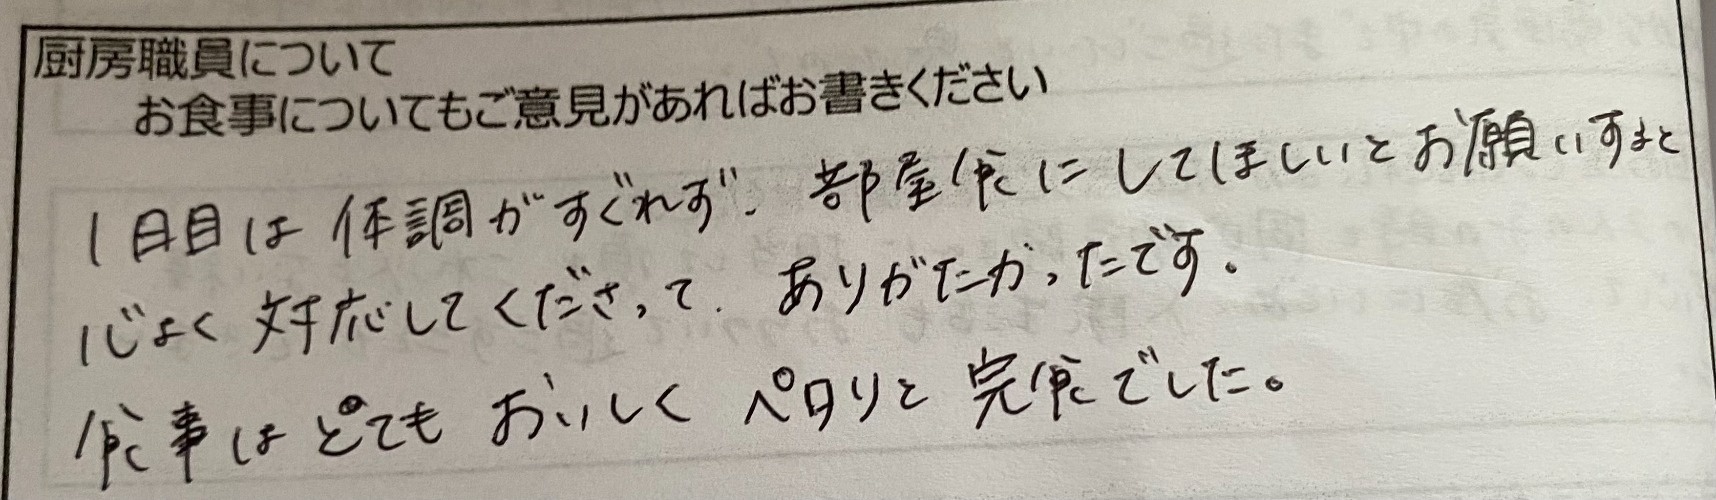 厨房職員について
お食事についてもご意見があればお書きください
1日目は体調がすぐれず、部屋食にしてほしいとお願いすると
心よく対応してくださって、ありがたかったです。
食事はとてもおいしくペロリと完食でした。